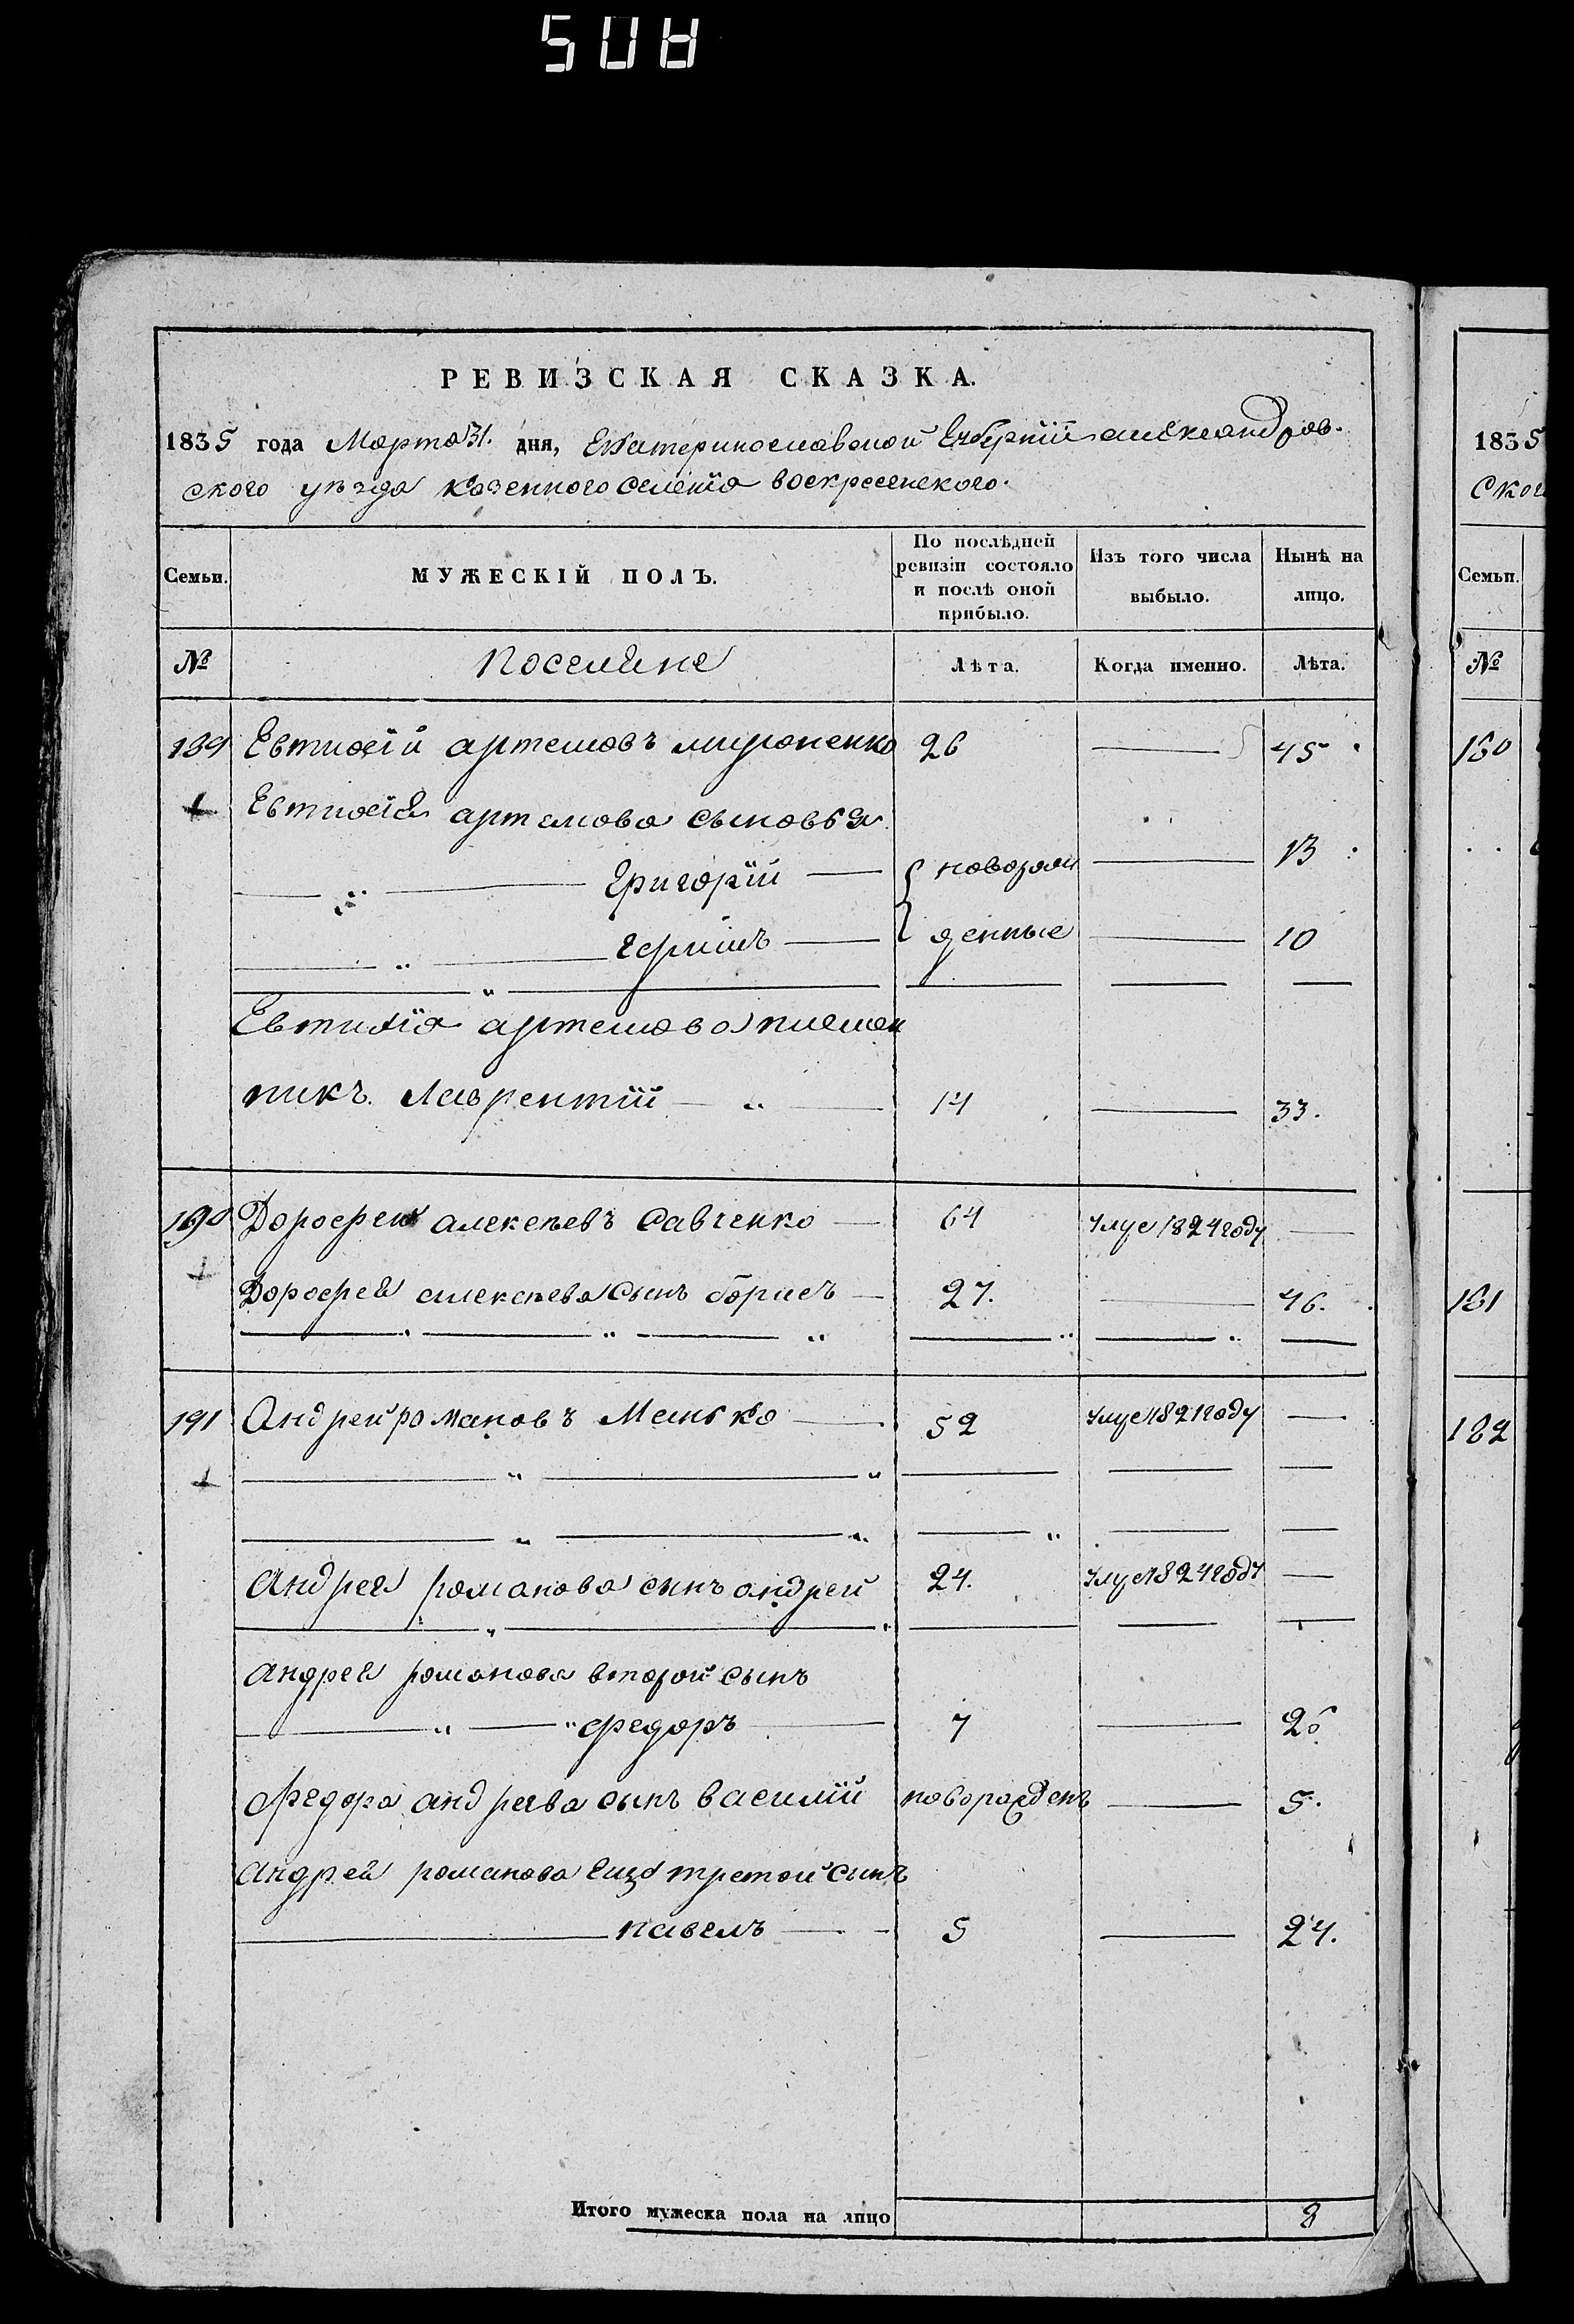 508
РЕВИЗСКАЯ СКАЗКА.
1835 года Марта 31. дня, Екатеринославской Губернии александров-
ского уѣзда казенного селенія воскресенского.
Семьи.
МУЖЕСКІЙ ПОЛЪ.
По послѣдней ревизіи состояло и послѣ оной прибыло.
Изъ того числа выбыло.
Нынѣ на лицо.
№ Поселяне Лѣта. Когда именно. Лѣта.
189 Евтихій артемовъ мироненко 26 45
Евтихія артемова сыновья
Григорій новорож 13
Герасимъ денные 10
Евтихія артемова племен
никъ Лаврентій 14 33.
190 Дорофей алексѣевъ Савченко 64 умре 1824 году
Дорофея алексѣева сынъ борисъ 27. 46.
191 Андрей романовъ Манько 52 умре 1821 году
андрея романова сынъ андрей 24. умре 1824 году
андрея романова второй сынъ
федоръ 7 26
федора андреева сынъ василій новорожденъ 5.
андрея романова еще третой сынъ
павелъ 5 24.
Итого мужеска пола на лицо 8
1835
ского
Семьи.
№
180
181
182